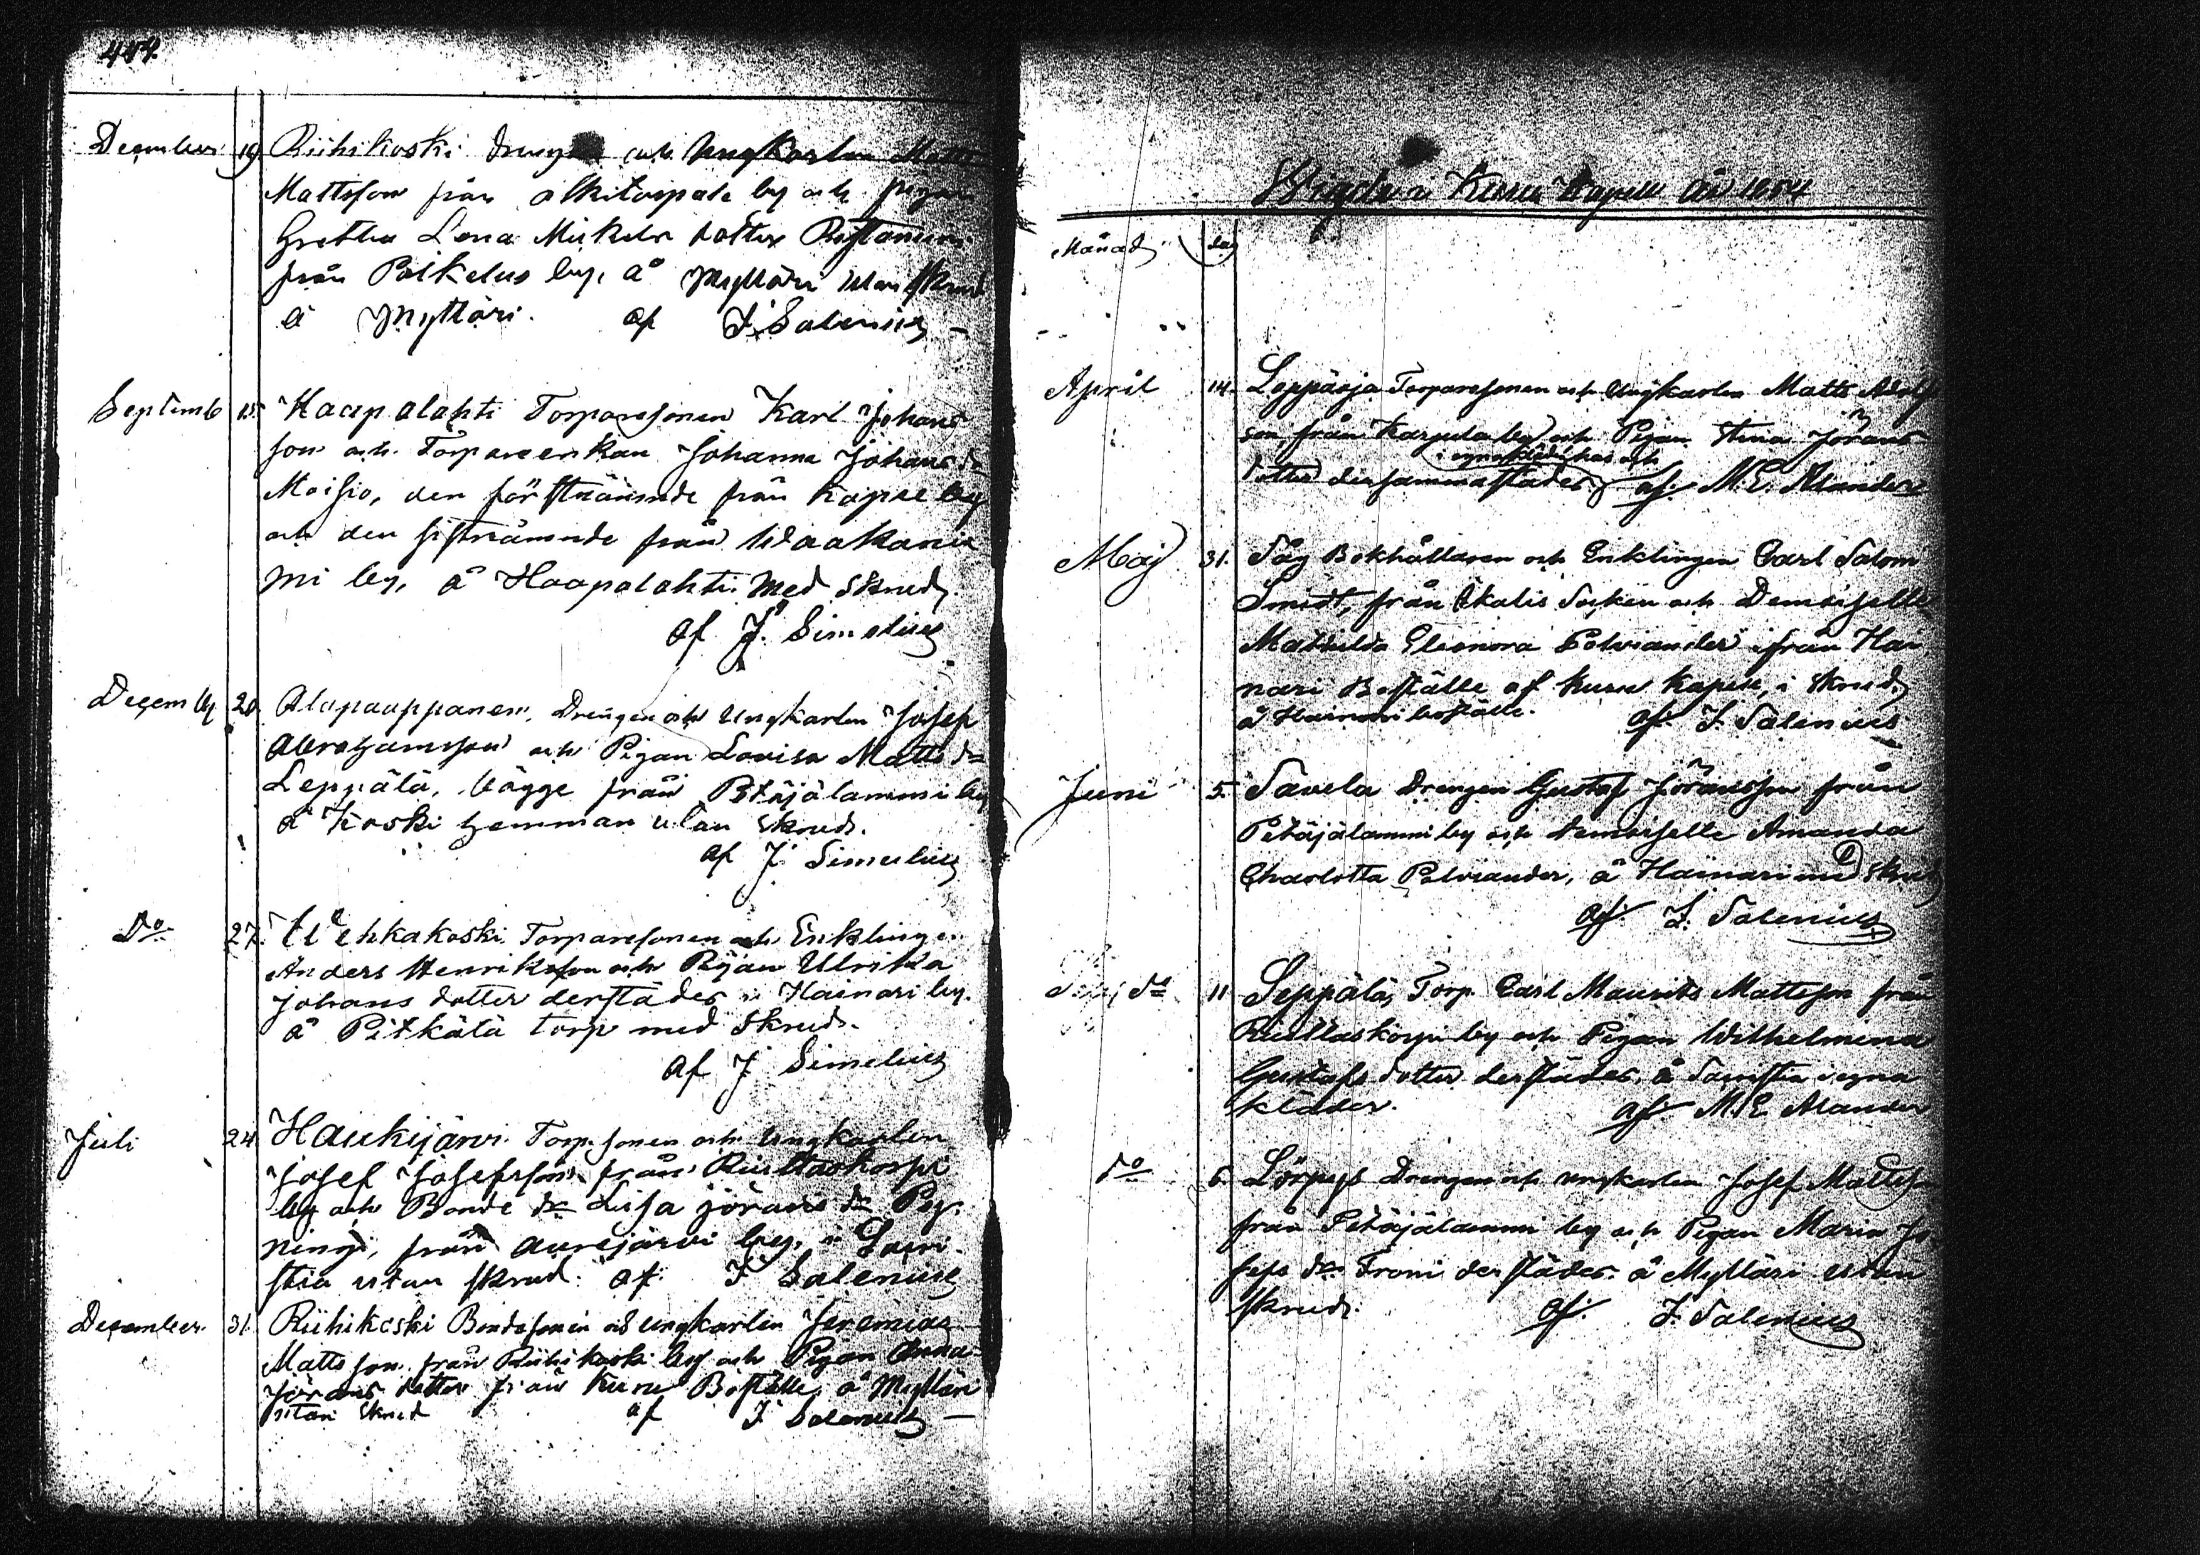 454.
December 19 Riihikoski drengen och Ungkarlen Matts
Mattsson från Olkitaipale by och pigan
Gretha Lena Mickels dotter
från Poikelus by, å Mylläri utan skrud
å Mylläri. af J. Salenius
Septemb 15. Haapalahti Torparesonen Karl Johans
son och Torpareenkan Johanna Johans dr
Moisio, den förstnämnde från Kapee by
och den sistnämnde från Waakanie
mi by, å Haapalahti med skrud.
af J. Simelius
Decemb 20. Alapaappanen, Drengen och Ungkarlen Josef
Abrahamsson och Pigan Lovisa Matts dr
Leppälä, bägge från Petäjälammi by
å Koski hemman utan skrud.
af J. Simelius
Do 27. Wehkakoski Torparesonen och Enklingen
Anders Henriksson och Pigan Ulrika
Johans dotter derstädes i Hainari by.
å Pitkälä torp med skrud.
af J Simelius
Juli 24. Haukijärvi Torp. sonen och Ungkarlen
Josef Josefsson från Riuttaskorpi
by och Bonde dr Lisa Jörans dr Py
ningi, från Aurejärvi by, i Sari
stia utan skrud. af J Salenius
December 31. Riihikoski Bondesonen och ungkarlen Jeremias
Matts son från Riihikoski by och Pigan Anna
Jörans dotter från Kuru Boställe, å Mylläri
utan skrud af J Salenius
Wigde i Kuru Kapell År 1854
Månad dag
April 14. Leppäoja Torparesonen och Ungkarlen Matts Adolf
son, från Karpula by och Pigan Stina Jörans
i egna kläder hos och
dotter dersammastädes af M. E. Alander
Maj 31. Såg Bokhållaren och Enklingen Carl Salom
Smidt, från Ikalis Socken och Demoiselle
Mathilda Eleonora Polviander ifrån Hai
nari Boställe af Kuru Kapell, i skrud,
å Hainari boställe. af J. Salenius
Juni 5. Savela Drengen Gustaf Jöransson från
Petäjälammi by och demoiselle Amanda
Charlotta Polviander, å Hainari med skrud
af J. Salenius
do 11 Seppälä, Torp. Carl Maurits Mattsson från
Riuttaskorpi by och Pigan Wilhelmina
Gustafs dotter derstädes, å i egna
kläder. af M. E. Alander
do 6. Lörpys Drengen och ungkarlen Josef Mattsson
från Petäjälammi by och Pigan Maria Jo
sefs dr Froni derstädes. å Mylläri utan
skrud. af. J. Salenius